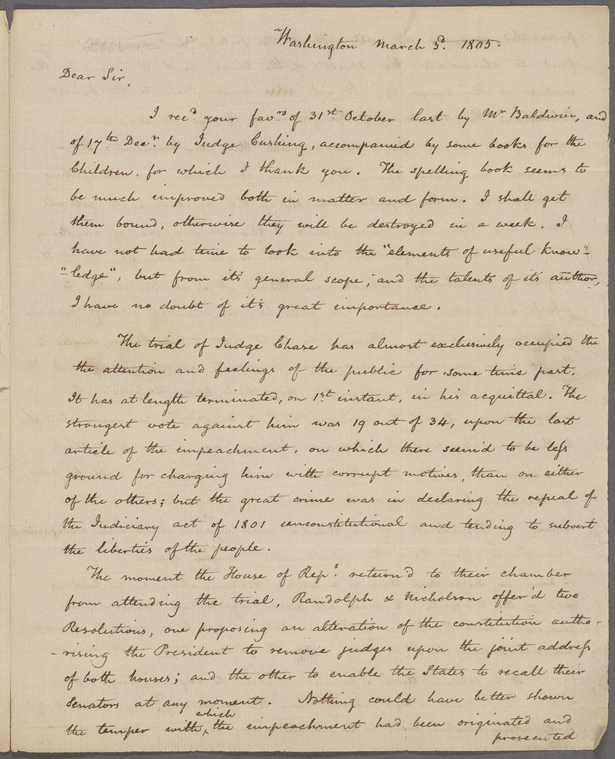 Washington March 3d. 1805.
Dear Sir,
I recd your favrs of 31st October last by Mr Baldwin, and
of 17th Decr by Judge Cushing, accompanied by some books for the
Children, for which I thank you. The spelling book seems to
be much improved both in matter and form. I shall get
them bound, otherwise they will be destroyed in a week. I
have not had time to look into the "elements of useful know-
"ledge", but from it's general scope, and the talents of it's author,
I have no doubt of it's great importance.
The trial of Judge Chase has almost exclusively occupied the
the attention and feelings of the public for some time past.
It has at length terminated, on 1st instant, in his acquittal. The
strongest vote against him was 19 out of 34, upon the last
article of the impeachment, on which there seem'd to be less
ground for charging him with corrupt motives, than on either
of the others; but the great crime was in declaring the repeal of
the Judiciary act of 1801 unconstitutional and tending to subvert
the liberties of the people.
The moment the House of Reps. return'd to their chamber
from attending the trial, Randolph & Nicholson offer'd two
Resolutions, one proposing an alteration of the constitution autho-
-rising the President to remove judges upon the joint address
of both houses; and the other to enable the States to recall their
Senators at any moment. Nothing could have better shown
the temper with which the impeachment had been originated and
prosecuted